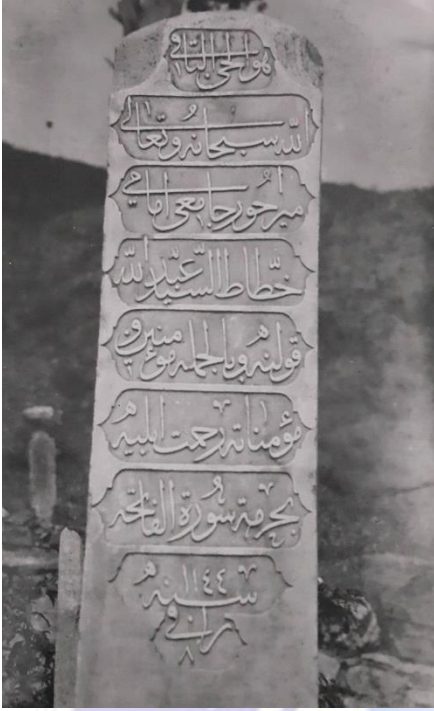 هو الحي الباقي
الله سبحانه وتعالى
ميراخور جامعى امامى
خطاط السيد عبد الله
قولينه وبالجمله مؤمنين و
مؤمناته رحمت ايليه
بحرمة سورة الفاتحه
سنه ١١٤٤
را في ٨